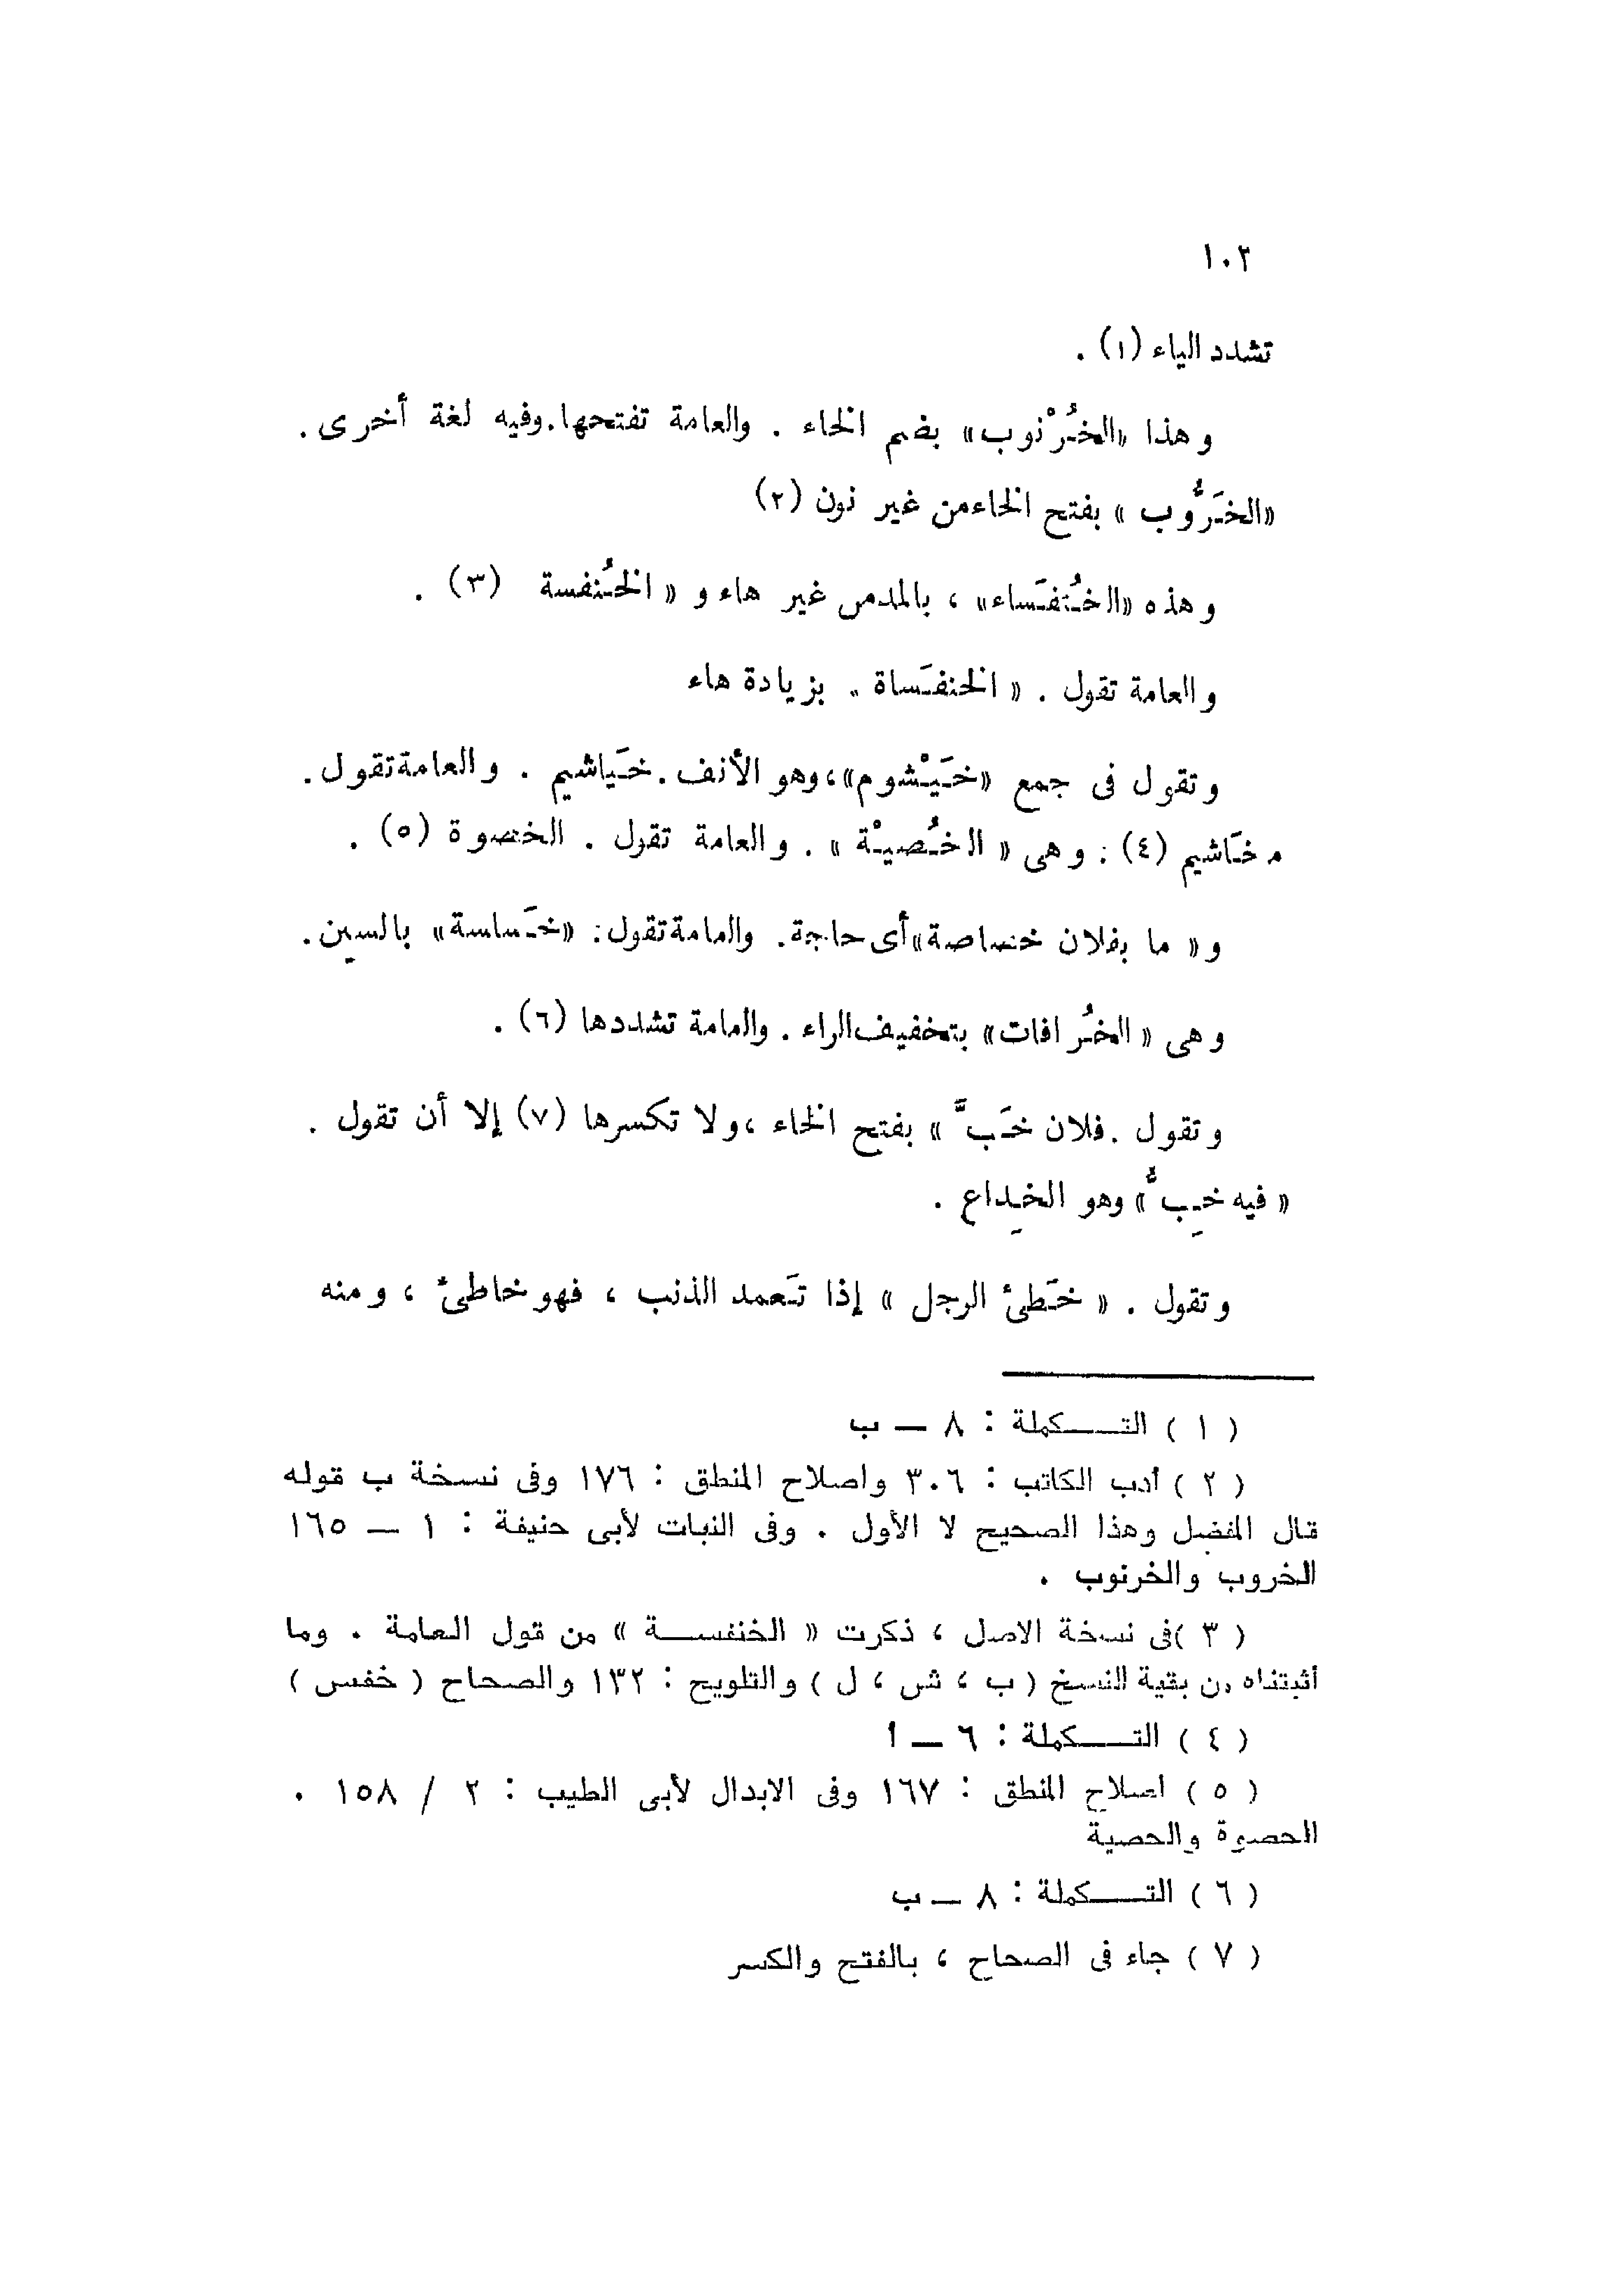 ١٠٢
تشدد الياء (١) .
وهذا «الخُرْنوب» بضم الخاء . والعامة تفتحها.وفيه لغة أخرى .
«الخَرُّوب » بفتح الخاء من غير نون (٢)
وهذه «الخُنفَساء» ، بالمد من غير هاء و « الخُنفسة (٣) .
والعامة تقول . « الخنفَساة » بزيادة هاء
وتقول فى جمع «خَيْشوم»،وهو الأنف.خَياشيم . والعامة تقول .
مخَاشيم (٤) : وهى « الخُصيْة » . والعامة تقول . الخصوة (٥) .
و« ما بفلان خصاصة»أى حاجة. والعامة تقول: «خَساسة» بالسين.
وهى « الخُرافات» بتخفيف الراء . والعامة تشددها (٦) .
وتقول .فلان خَبٌّ » بفتح الخاء ،ولا تكسرها (٧) إلا أن تقول .
« فيه خِبٌّ» وهو الخِداع .
وتقول . « خَطئ الرجل » إذا تَعمد الذنب ، فهو خاطئ ، ومنه
( ١ ) التـــكملة : ٨ — ب
( ٢ ) أدب الكاتب : ٣٠٦ واصلاح المنطق : ١٧٦ وفى نسخة ب قوله
قال المفضل وهذا الصحيح لا الأول . وفى النبات لأبى حنيفة : ١ — ١٦٥
الخروب والخرنوب .
( ٣ )فى نسخة الاصل ، ذكرت « الخنفســة » من قول العامة . وما
أثبتناه من بقية النسخ ( ب ، ش ، ل ) والتلويح : ١٣٢ والصحاح ( خفس )
( ٤ ) التـــكملة : ٦ — ا
( ٥ ) اصلاح المنطق : ١٦٧ وفى الابدال لأبى الطيب : ٢ / ١٥٨ .
الحصوة والحصية
( ٦ ) التـــكملة : ٨ — ب
( ٧ ) جاء فى الصحاح ، بالفتح والكسر